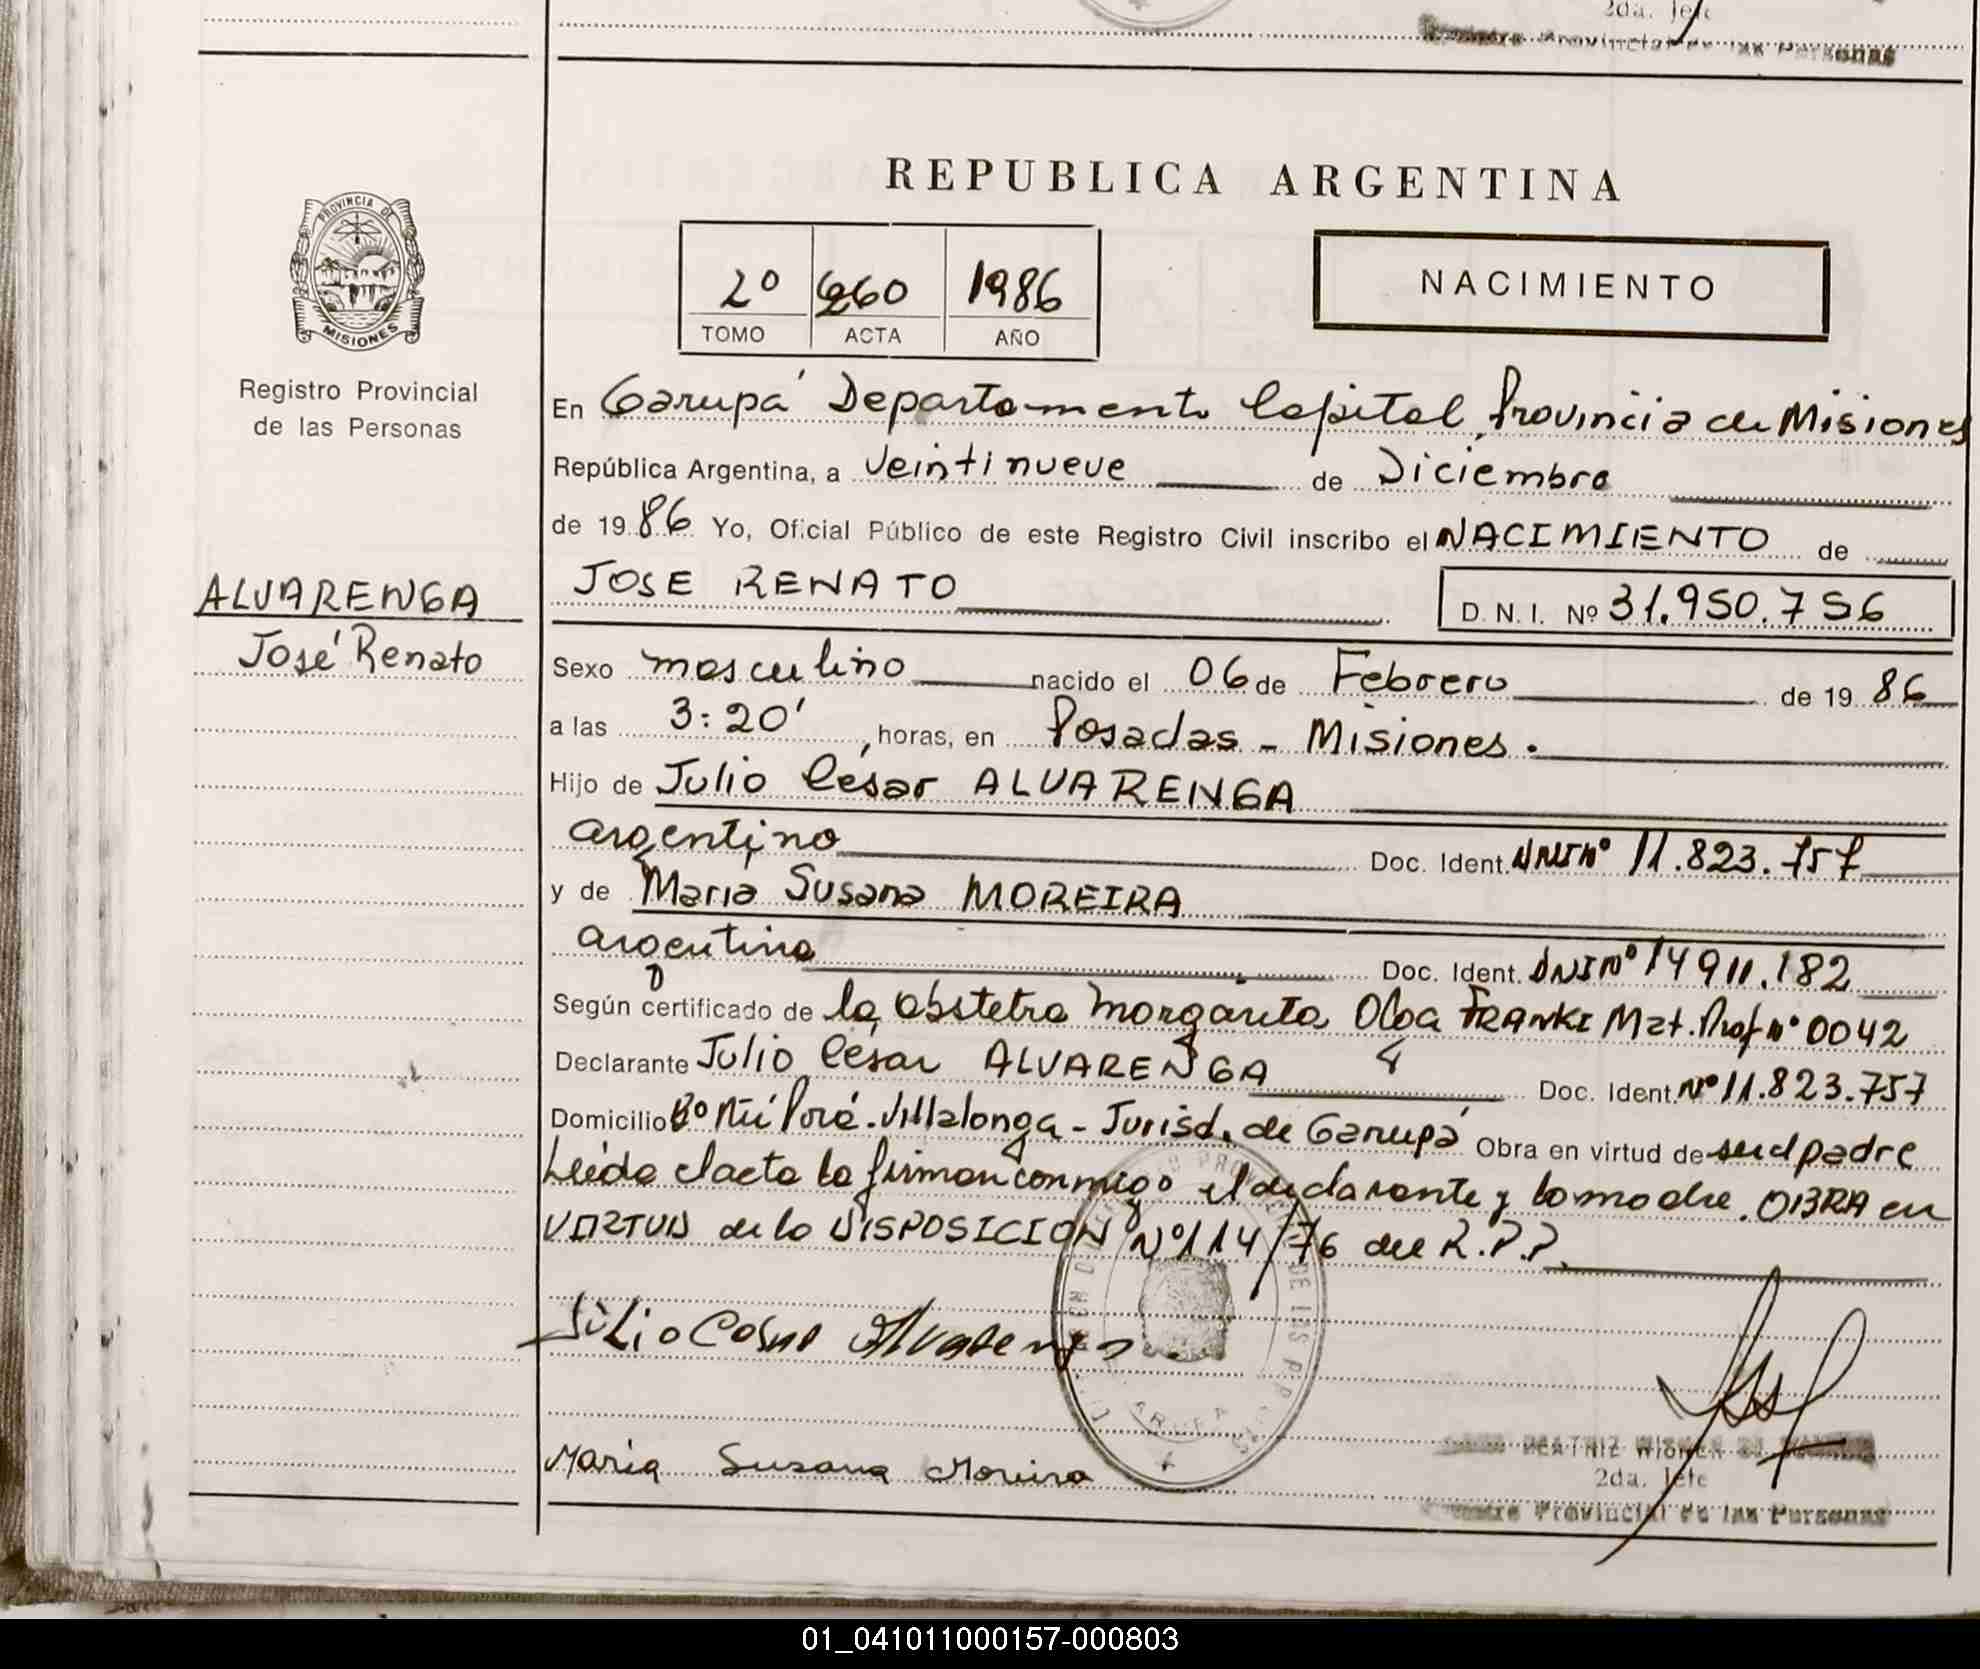 2da. Jefe
Provincial de las Personas
REPUBLICA ARGENTINA
PROVINCIA DE
MISIONES
2º 660 1986
TOMO ACTA AÑO
NACIMIENTO
Registro Provincial
de las Personas
En Garupá Departamento Capital, Provincia de Misiones
República Argentina, a Veintinueve de Diciembre
de 1986 Yo, Oficial Público de este Registro Civil inscribo el NACIMIENTO de
ALVARENGA
José Renato
JOSE RENATO
D. N. I. Nº 31.950.756
Sexo masculino nacido el 06 de Febrero de 1986
a las 3:20' , horas, en Posadas - Misiones.
Hijo de Julio César ALVARENGA
argentino Doc. Ident. DNI Nº 11.823.757
y de María Susana MOREIRA
argentina Doc. Ident. DNI Nº 14911.182
Según certificado de la obstetra Margarita Olga FRANKE Mat. Prof nº 0042
Declarante Julio César ALVARENGA Doc. Ident. Nº 11.823.757
Domicilio Bº Ñu Porá. Villalonga - Jurisd. de Garupá Obra en virtud de ser el padre
Leída el acta la firman conmigo el declarante y la madre. OBRA en
VIRTUD de la DISPOSICION Nº 114/76 del R.P.P.
Julio Cesar Alvarenga
GARUPA
Maria Susana Moreira
BEATRIZ
2da. Jefe
Provincial de las Personas
01_041011000157-000803